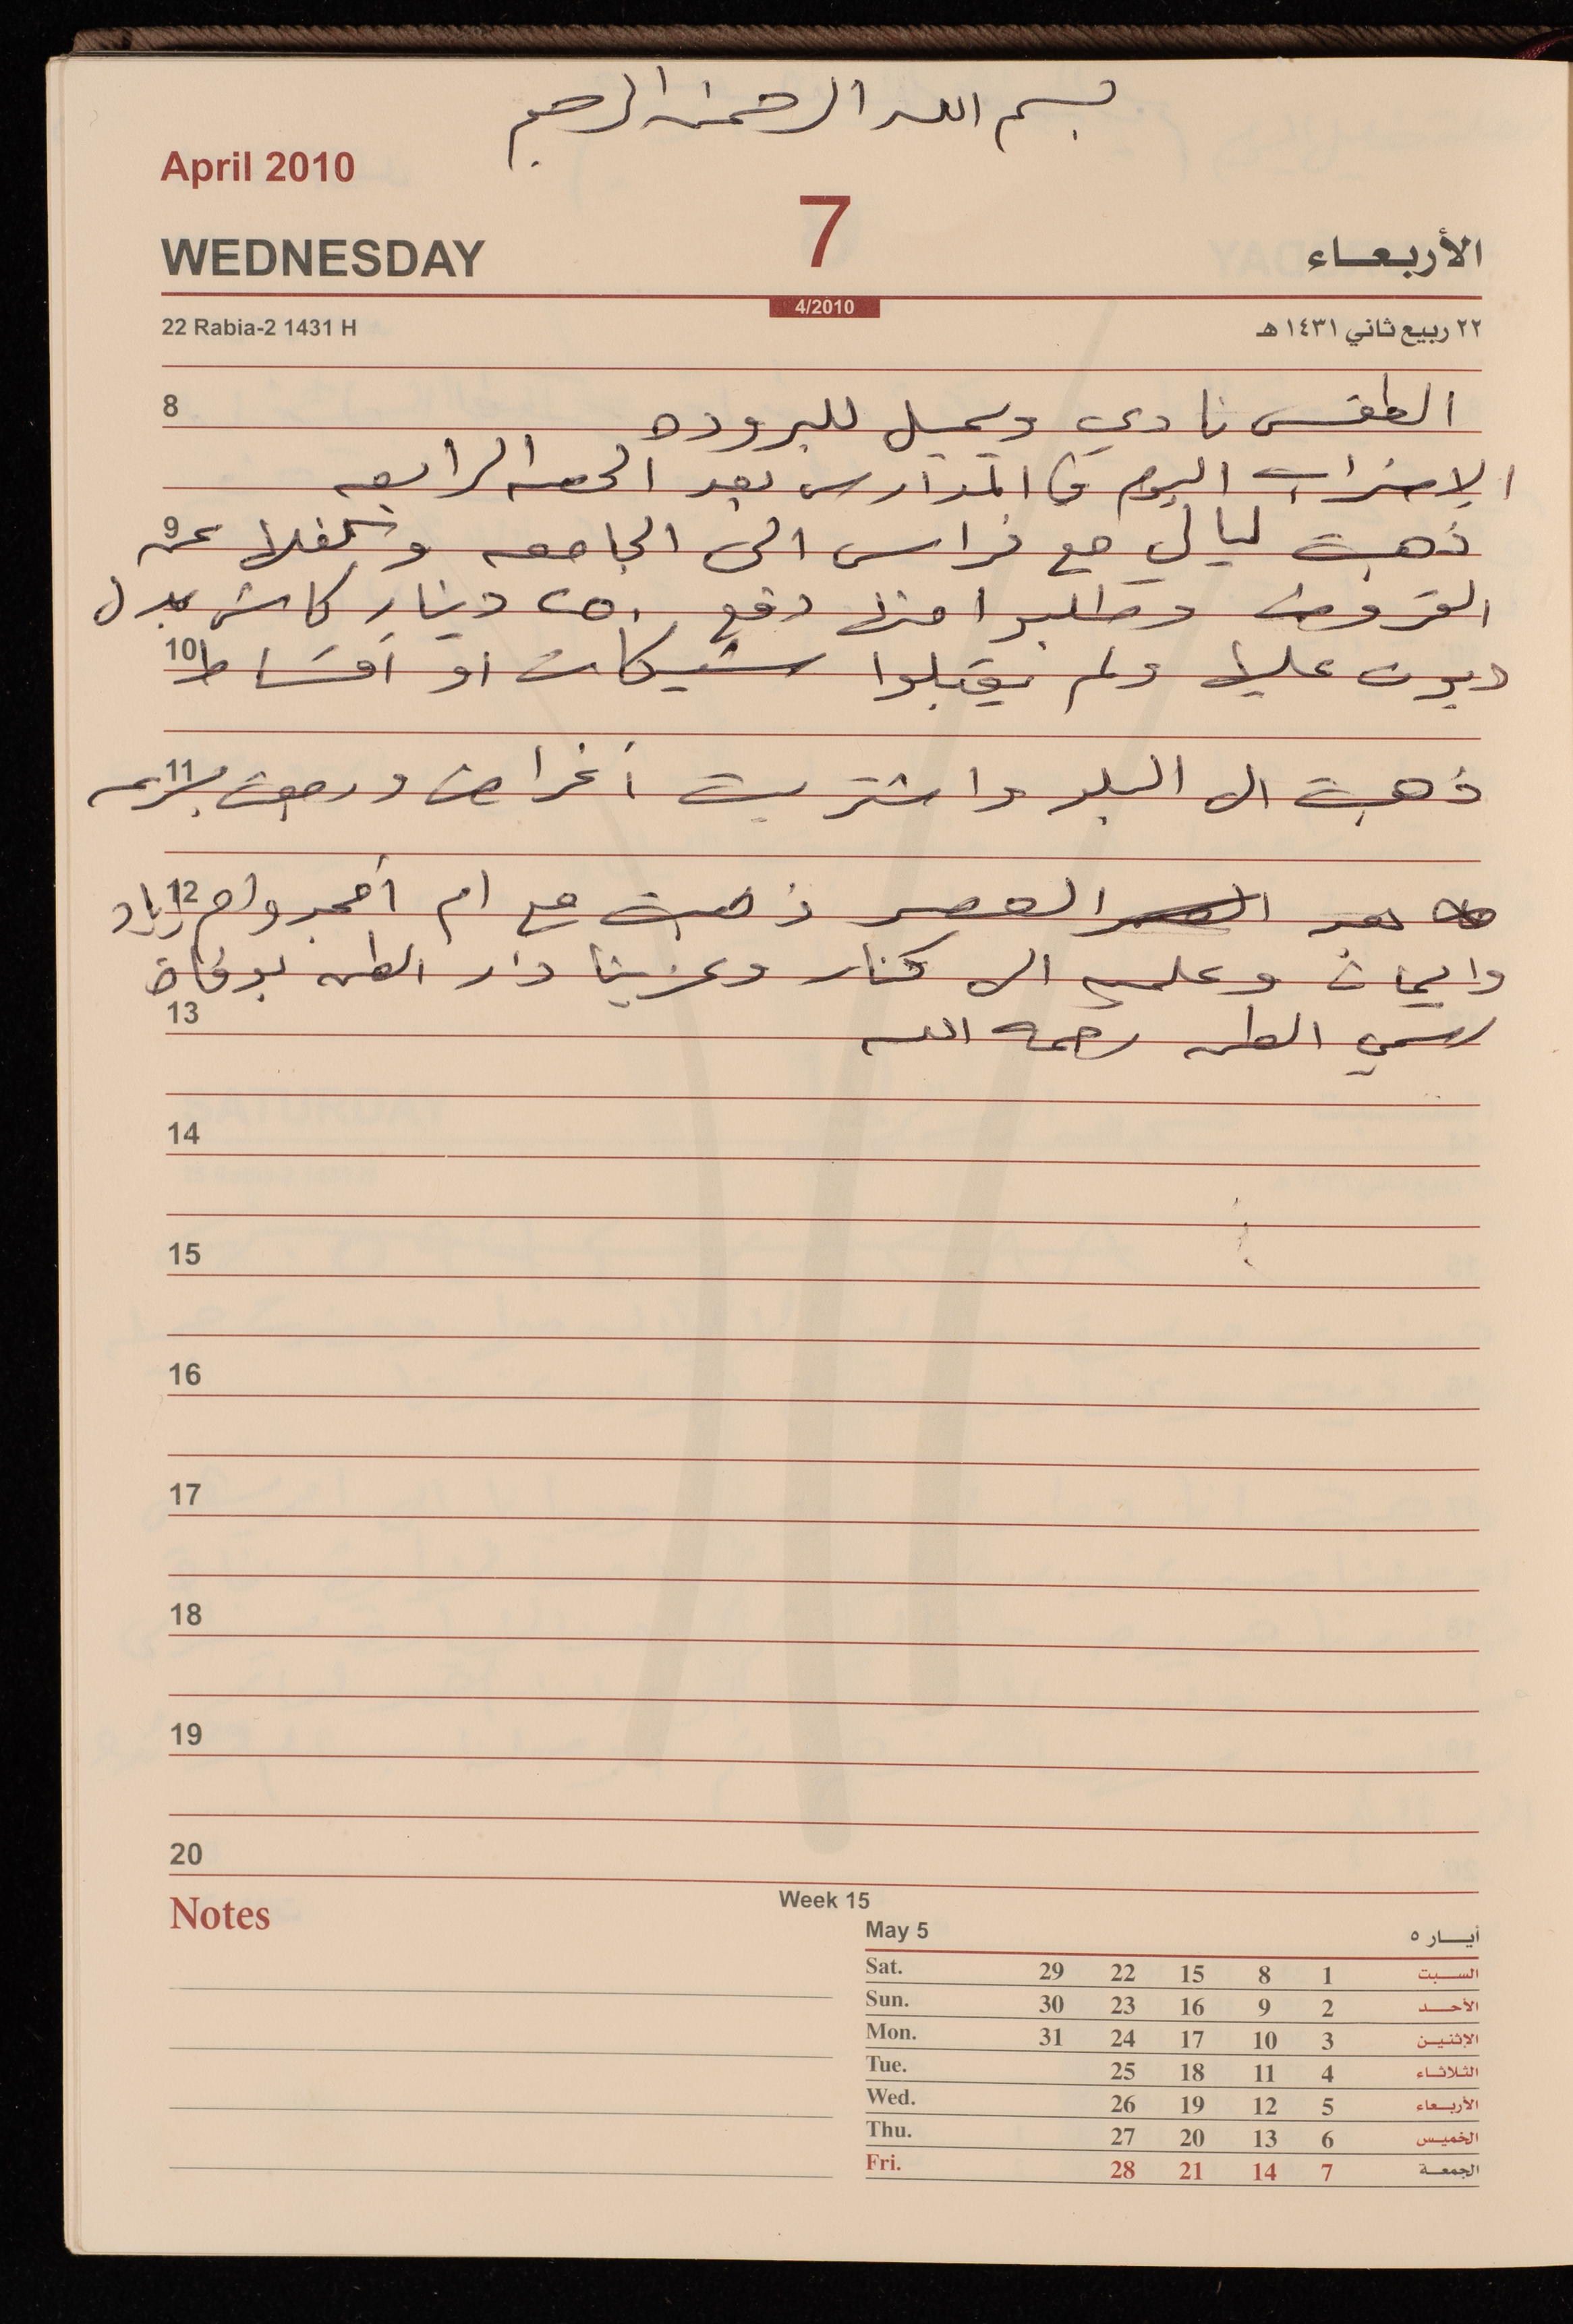 بسم الله الرحمن الرحيم
April 2010
7
WEDNESDAY
الأربعاء
4/2010
22 Rabia-2 1431 H
٢٢ ربيع ثاني ١٤٣١ هـ
8 الطقس نادي ويميل للبروده
الاضراب اليوم في المدارس بعد الحصه الرابعه
9 ذهبت ليالي مع فراس الى الجامعه عن
القروض وطلبوا منها دفع ٢٥٠ دينار كاش بدل
10 ديون عليها ولم يقبلوا شيكات او أقساط
11 ذهبت الى البلد واشتريت أغراض ورجعت بسرعه
12 بعد العصر ذهبت مع ام أمجد وام زياد
وايمان وعليه الى كنار وعزينا دار الطل بوفاة
13 رسمي الطل رحمه الله
14
15
16
17
18
19
20
Notes
Week 15
May 5 أيـــار ٥
Sat. 29 22 15 8 1 السبت
Sun. 30 23 16 9 2 الأحد
Mon. 31 24 17 10 3 الإثنين
Tue. 25 18 11 4 الثلاثاء
Wed. 26 19 12 5 الأربعاء
Thu. 27 20 13 6 الخميس
Fri. 28 21 14 7 الجمعة